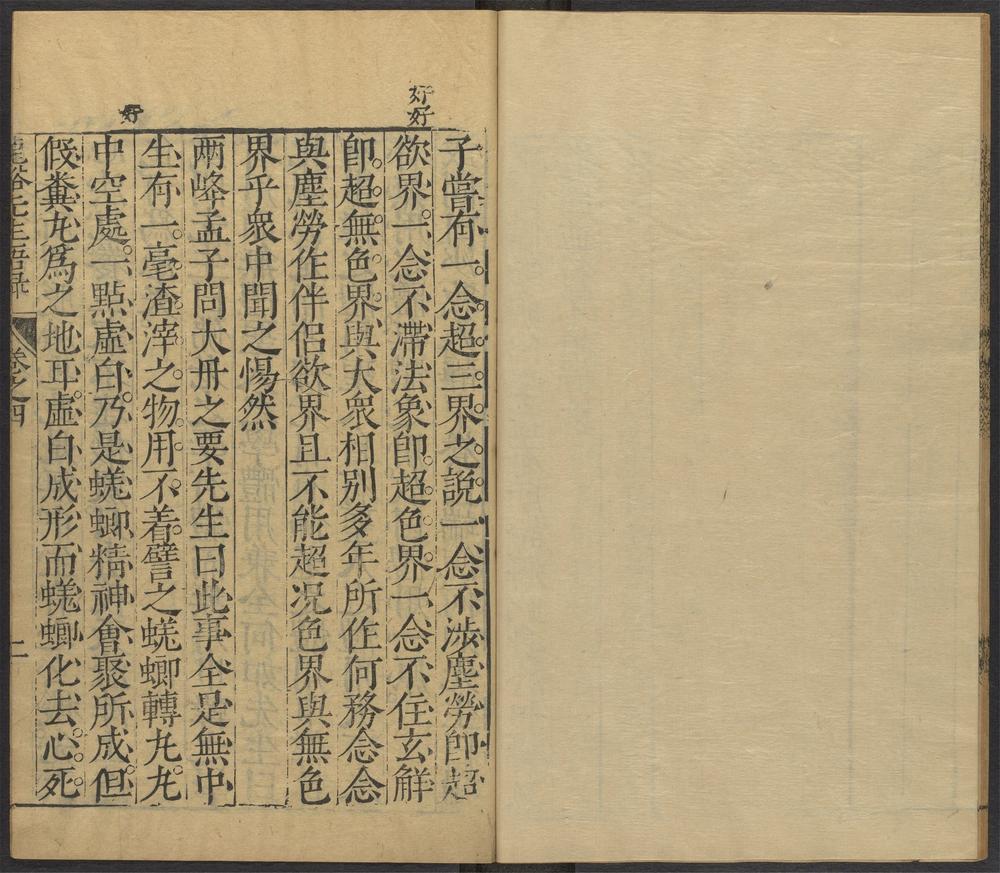 好好
好
子嘗有一念超三界之說一念不涉塵勞卽超
欲界一念不滯法象卽超色界一念不住玄解
卽超無色界與大衆相別多年所作何務念念
與塵勞作伴侶欲界且不能超况色界與無色
界乎衆中聞之惕然
兩峰孟子問大丹之要先生曰此事全是無中
生有一毫渣滓之物用不着譬之蜣蜋轉丸丸
中空處一點虛白乃是蜣蜋精神會聚所成但
假糞丸爲之地耳虛白成形而蜣蜋化去心死
龍谿先生語錄 卷之四 二